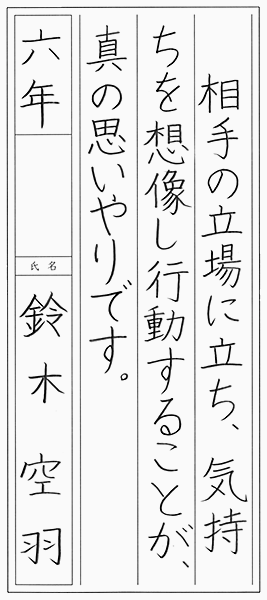 相手の立場に立ち、気持
ちを想像し行動することが、
真の思いやりです。
六年
氏名
鈴木空羽